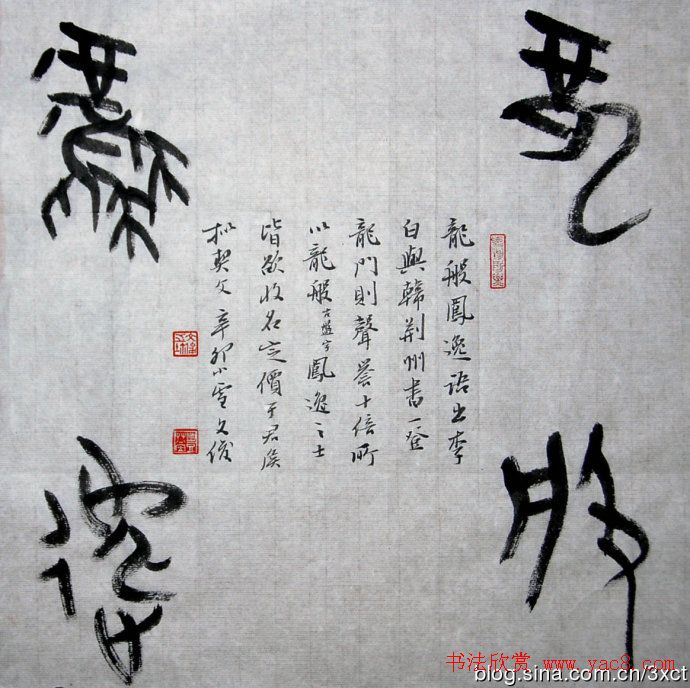 龍般
鳳逸
龍般鳳逸語出李
白與韓荊州書一登
龍門則聲譽十倍所
以龍般古盤字鳳逸之士
皆欲收名定價于君侯
拟契文辛卯小雪文俊
书法欣赏 www.yac8.com
blog.sina.com.cn/3xct